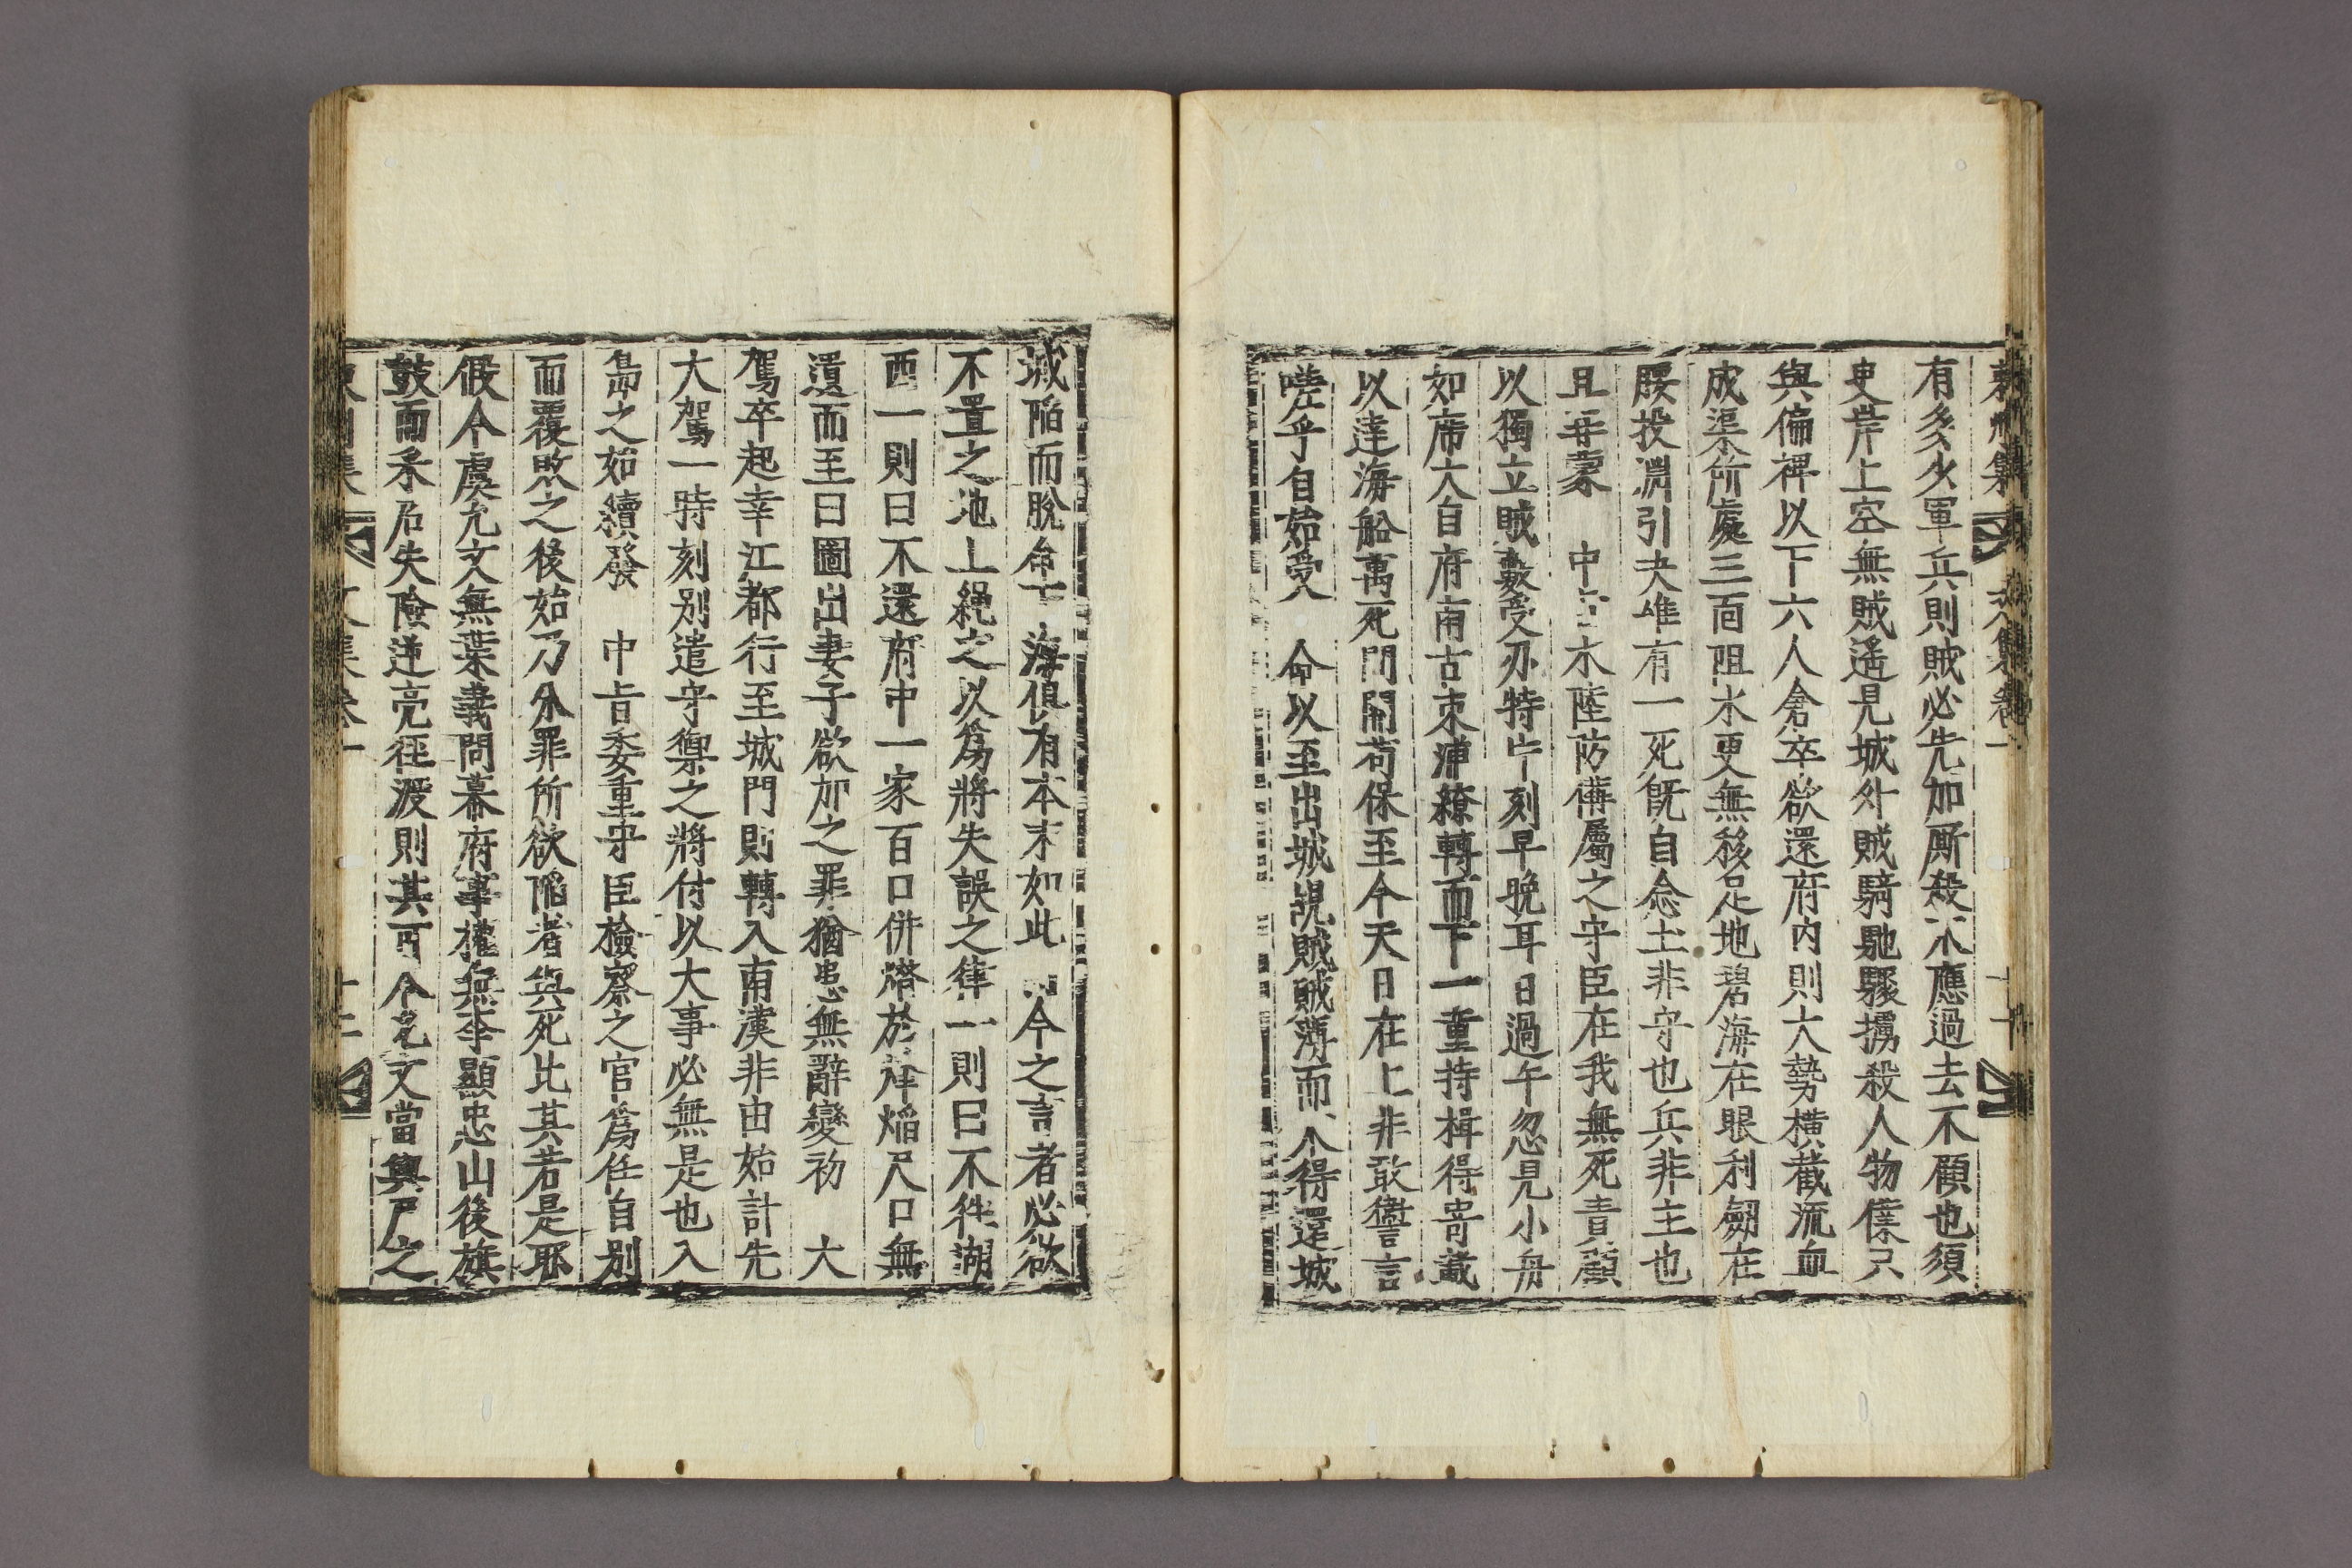 東州集 文集卷一 十一
有多少軍兵則賊必先加厮殺不應過去不顧也須
吏岸上空無賊遙見城外賊騎馳驟擄殺人物僕只
與偏裨以下六人倉卒欲還府內則大勢橫截流血
成渠所處三面阻水更無移足地碧海在眼利劒在
腰投淵引决唯有一死旣自念土非守也兵非主也
且毋蒙 中 水陸防備屬之守臣在我無死責顧
以獨立賊藪受刃特片刻早晚耳日過午忽見小舟
如席大自府南古束浦繚轉而下一童持楫得寄載
以達海船萬死門開苟保至今天日在上非敢讆言
嗟乎自始受 命以至出城覘賊賊薄而不得還城
城陷而脫命下海俱有本末如此 今之言者必欲
不置之地上繩之以爲將失誤之律一則曰不往湖
西一則曰不還府中一家百口倂燼於烽焰尺口無
遺而至曰圖出妻子欲加之罪猶患無辭變初 大
駕卒起幸江都行至城門則轉入南漢非由始計先
大駕一時刻別遣守禦之將付以大事必無是也入
島之始續發 中旨委重守臣檢察之官爲任自別
而覆敗之後始乃分罪所欲陷者與死比其若是耶
假令虞允文無葉義問幕府事權無李顯忠山後旗
鼓而釆石失險逆亮徑渡則其可令允文當輿尸之
集 文集卷一 十二